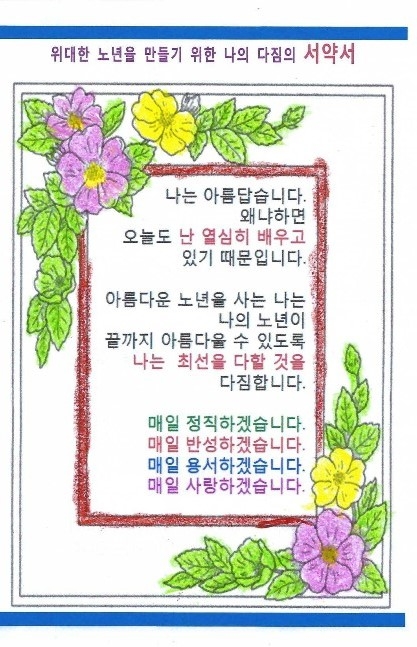 위대한 노년을 만들기 위한 나의 다짐의 서약서
나는 아름답습니다.
왜냐하면
오늘도 난 열심히 배우고
있기 때문입니다.
아름다운 노년을 사는 나는
나의 노년이
끝까지 아름다울 수 있도록
나는 최선을 다할 것을
다짐합니다.
매일 정직하겠습니다.
매일 반성하겠습니다.
매일 용서하겠습니다.
매일 사랑하겠습니다.